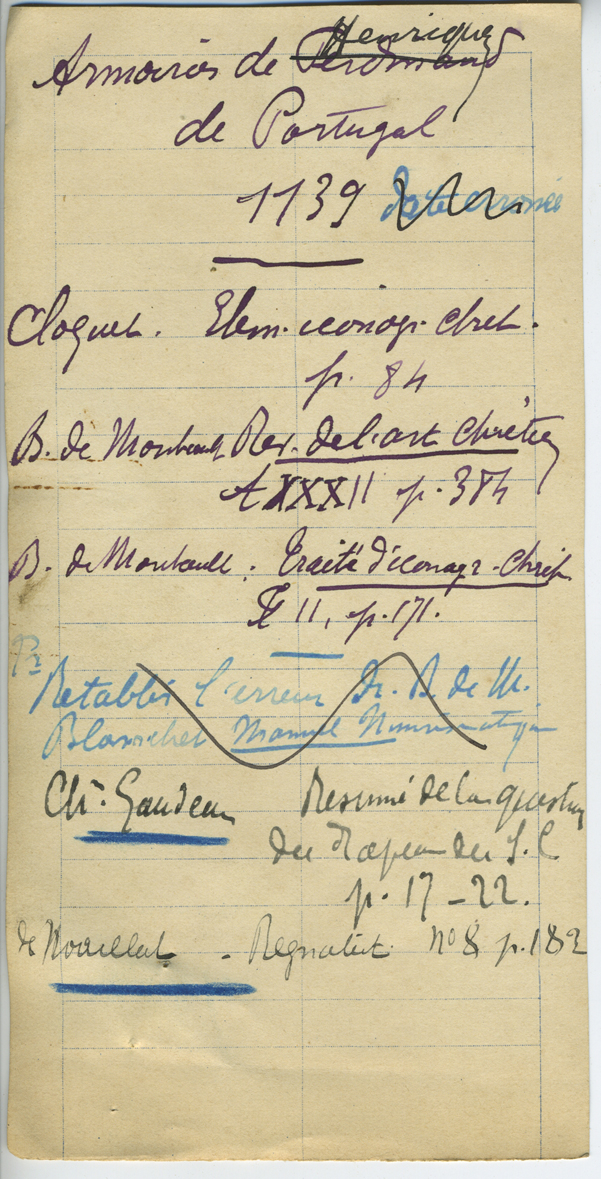 Henriquez
Armoiries de Ferdinand
de Portugal
1139 Date erronée
Cloquet. Elem. iconogr. chret.
p. 84
B. de Montault Rev. de l'art Chrétien
t XXXII p. 384
B. de Montault. Traité d'iconogr. Chrét
T II, p. 171.
Retablir l'erreur de B. de M.
Blanchet Manuel Numismatique
Ch. Gaudeau Resumé de la question
du Drapeau du S. C.
p. 17-22.
de Noaillat - Regnabit n° 8 p. 182